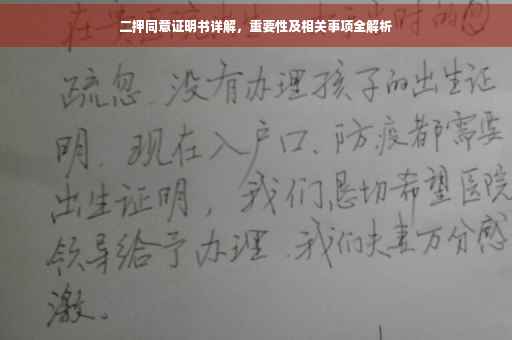 二押同意证明书详解，重要性及相关事项全解析
疏忽、没有办理孩子的出生证
明、现在入户口、防疫都需要
出生证明，我们恳切希望医院
领导给予办理、我们夫妻万分感
激。